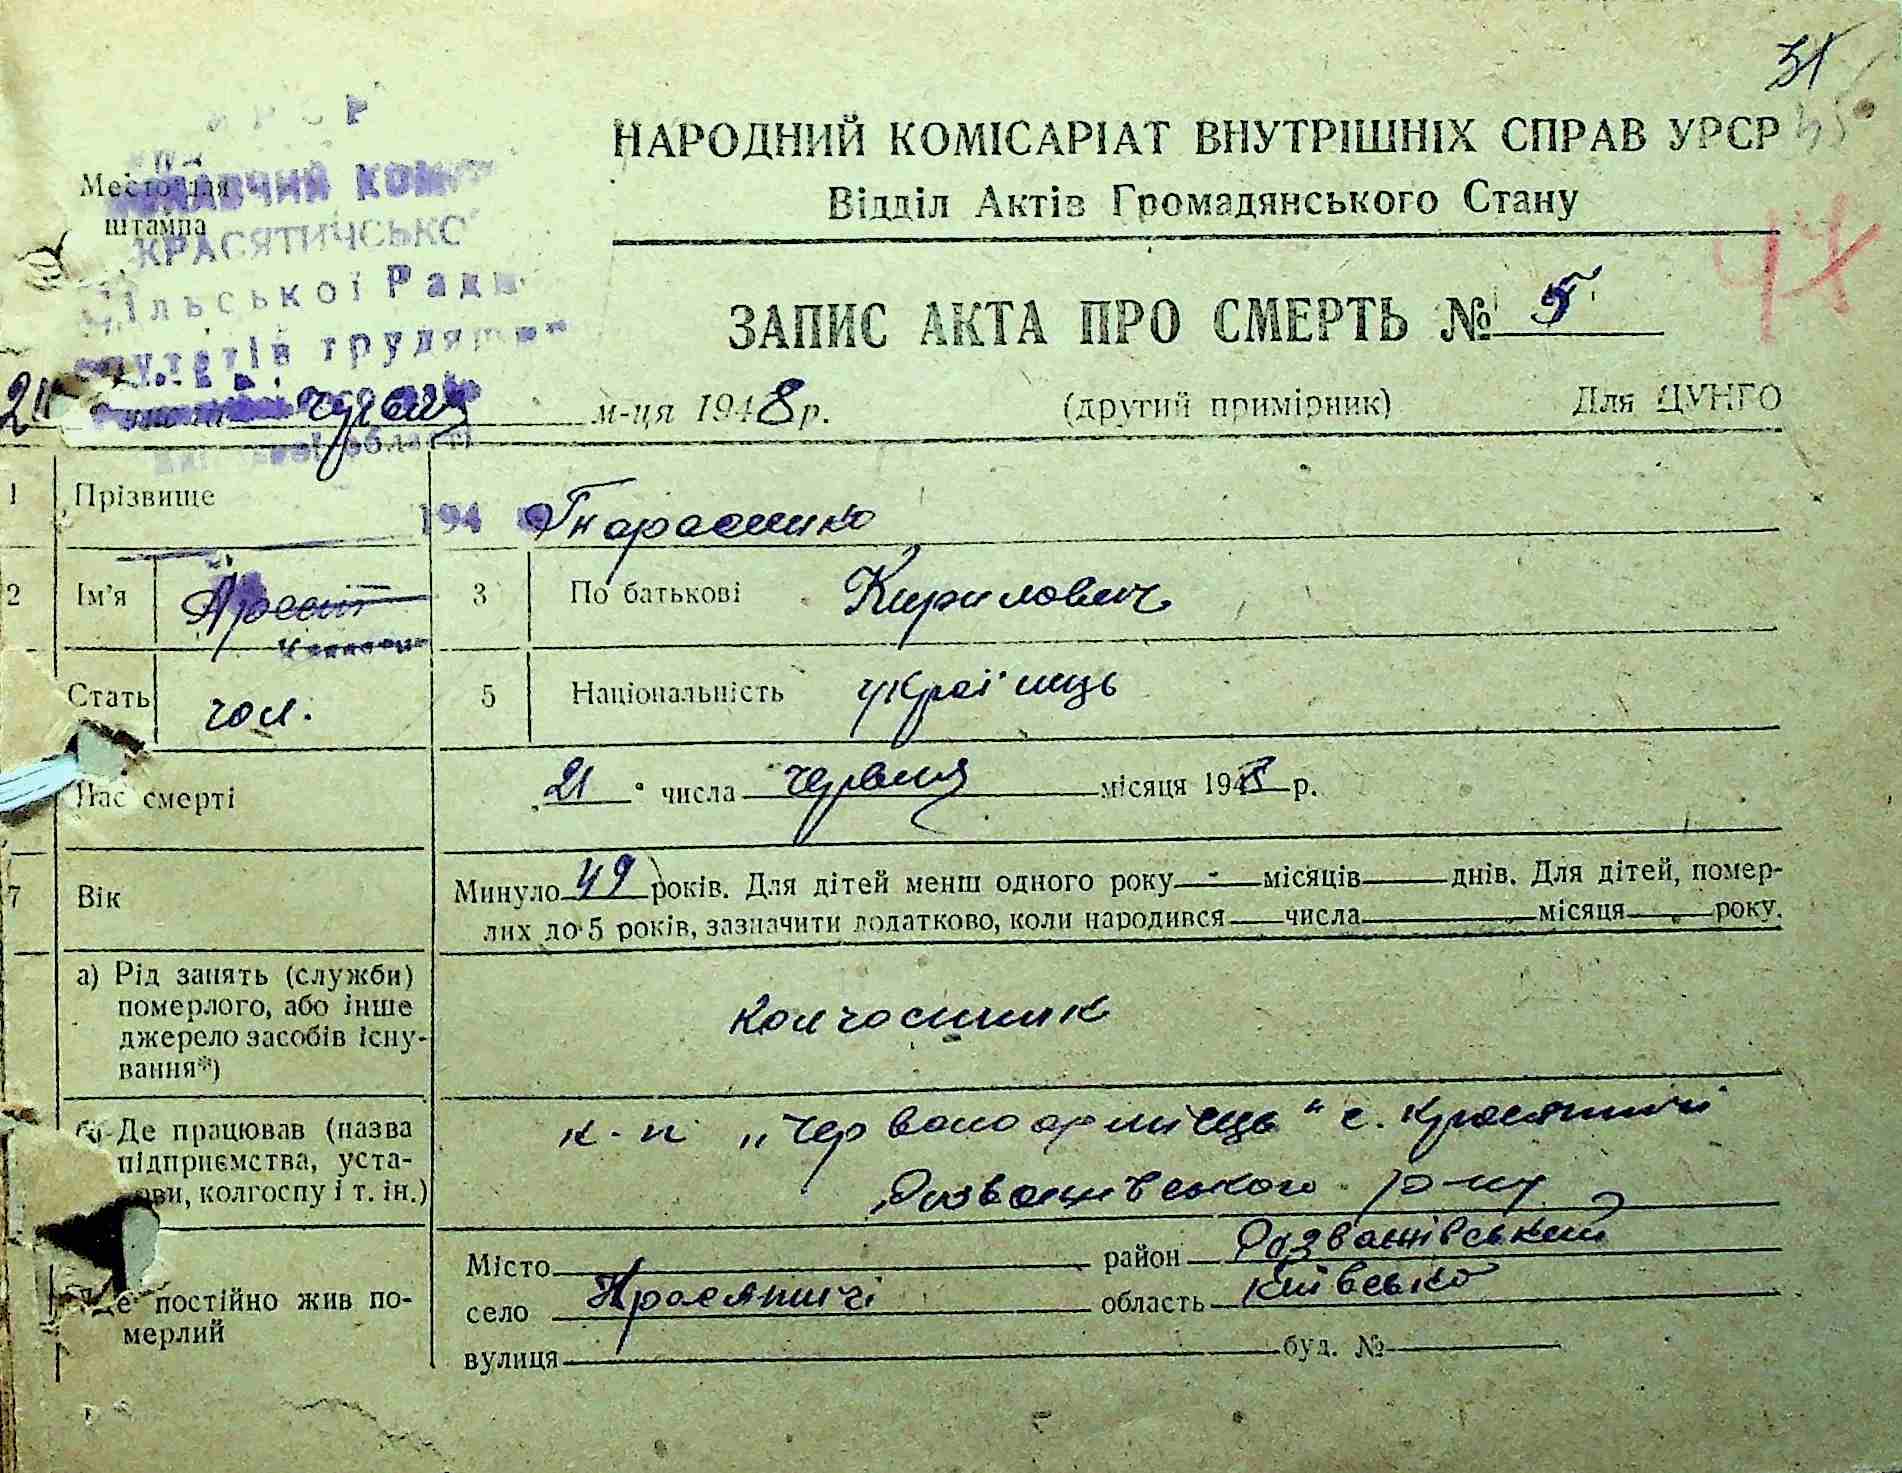 31
НАРОДНИЙ КОМІСАРІАТ ВНУТРІШНІХ СПРАВ УРСР
Відділ Актів Громадянського Стану
Место для
штампа
КРАСЯТИЧСЬКО
ільської Ради
ЗАПИС АКТА ПРО СМЕРТЬ № 5
21 червня м-ця 1948 р. (другий примірник) Для ЦУНГО
області
1 Прізвище 194 Тарасенко
2 Ім'я Арсент 3 По батькові Кирилович
Стать чол. 5 Національність українець
Час смерті 21 числа червня місяця 1948 р.
7 Вік Минуло 49 років. Для дітей менш одного року - місяців днів. Для дітей, помер-
лих до 5 років, зазначити додатково, коли народився числа місяця року.
а) Рід занять (служби)
померлого, або інше
джерело засобів існу-
вання*)
колгоспник
б) Де працював (назва
підприємства, уста-
ови, колгоспу і т. ін.)
к-п „Червоноармієць" с. Красятичі
Розважівського р-ну
Де постійно жив по-
мерлий
Місто район Розважівський
село Красятичі область Київсько
вулиця буд. №